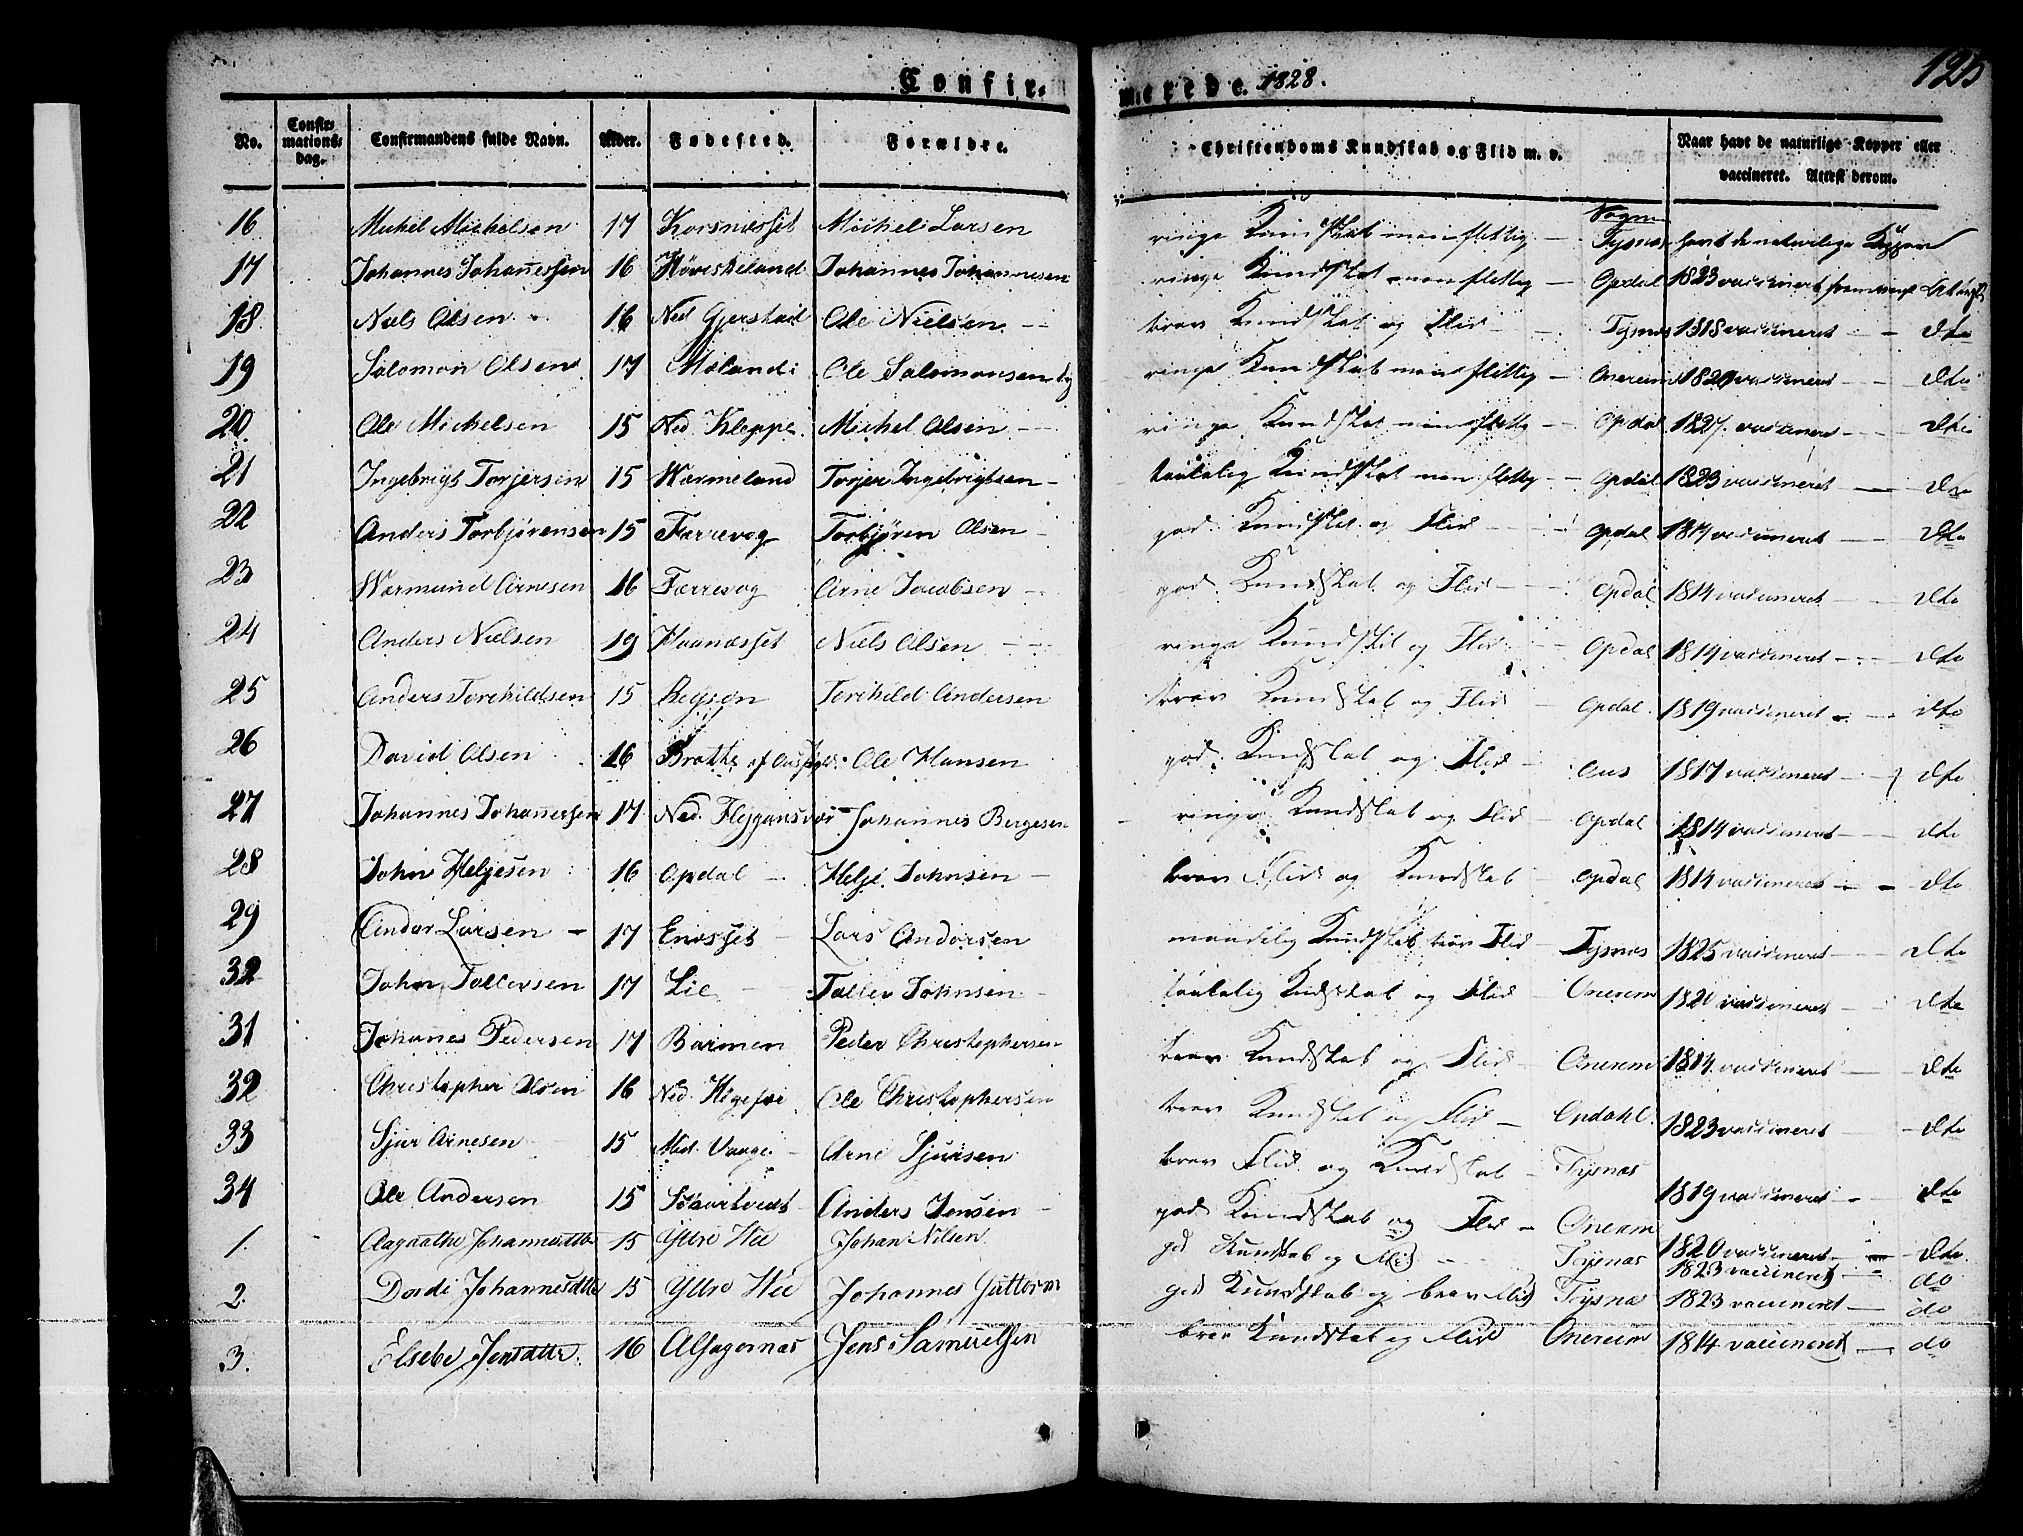 125
Confir- merede. 1828.
No. Confir-mations-dag. Confirmandens fulde Navn. Alder. Fødested. Forældre. Christendoms Kundskab og Flid m. v. Naar havt de naturlige Kopper eller vaccineret. Attest derom.
Sogne
16 Michel Michelsen 17 Korsnæsset Michel Larsen ringe Kundskab men flittig — Tysnæs havt de naturlige Kopper
17 Johannes Johannessen 16 Høviskeland Johannes Johannesen ringe Kundskab men flittig — Opdal 1823 vaccineret
18. Niels Olsen 16 Ned Gjerstad Ole Nielsen brav Kundskab og Flid — Tysnæs 1818 vaccineret — dto
19 Salomon Olsen 17 Meland Ole Salomonsen ringe Kundskab men flittig — Onereim vaccineret — dto
20 Ole Michelsen 15 Ned. Kleppe Michel Olsen ringe Kundskab men flittig — Opdal 1827 vaccineret — dto
21 Ingebrigt Torjersen 15 Wærmeland Torjer Ingebrigtsen taalelig Kundskab men flittig — Opdal 1823 vaccineret — dto
22 Anders Torbjørensen 15 Færrevog Torbjøren Olsen god Kundskab og Flid Opdal vaccineret — dto
23 Wærmund Arnesen 16 Færrevog Arne Jacobsen god Kundskab og Flid Opdal 1814 vaccineret — dto
24 Anders Nielsen 19 Haanæsset Niels Olsen ringe Kundskab og Flid Opdal 1814 vaccineret — dto
25 Anders Torchildsen 15 Reyson Torchild Andersen brav Kundskab og Flid Opdal 1819 vaccineret — dto
26 David Olsen 16 Brathe af Ole Hansen god Kundskab og Flid — Aus 1817 vaccineret — dto
27 Johannes Johannessen 17 Ned. Johannes Bergesen ringe Kundskab og Flid — Opdal 1814 vaccineret — dto
28 John Helgesen 16 Opdal — Helge Johnsen — brav Flid og Kundskab — Opdal 1814 vaccineret — dto
29 Andor Larsen — 17 Enæsset Lars Andorsen maadelig Kundskab brav Flid — Tysnæs 1825 vaccineret — dto
32 John Tollevsen 17 Lie Tollev Johnsen — taalelig Kundskab og Flid — Onerem vaccineret — dto
31 Johannes Pedersen 17 Barmen Peder Christophersen brav Kundskab og Flid — Onerem 1814 vaccineret — dto
32 Christopher Olsen 16 Ned. Ole Christophersen brav Kundskab og Flid — Opdahl 1823 vaccineret — dto
33 Sjur Arnesen 15 Med. Vaage Arne Sjursen brav Flid og Kundskab — Tysnæs 1819 vaccineret — dto
34 Ole Andersen 15 Anders Jensen god Kundskab og Flid — Onerem 1820 vaccineret — dto
1. Aagaathe Johannesdtr 15 Yttre Wee Johan Nilsen god Kundskab og Flid Tysnæs 1823 vaccineret — do
2. Dordi Johannesdtte 15 Yttre Wee Johannes Guttorm god Kundskab og brav Flid Tysnæs 1823 vaccineret — do
3. Elsebe Jensdtte. 16 Alsagernæs Jens Samuelsen brav Kundskab og Flid Onereim 1814 vaccineret — do